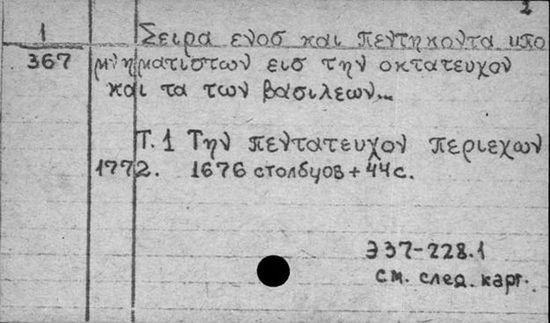 2
1 Σειρα ενοσ και πεντηκοντα υπο
367 μνηματιστων εισ την οκτατευχον
και τα των βασιλεων...
Τ.1 Την πεντατευχον περιεχων
1772. 1676 столбцов + 44 с.
Э37-228.1
см. след. карт.